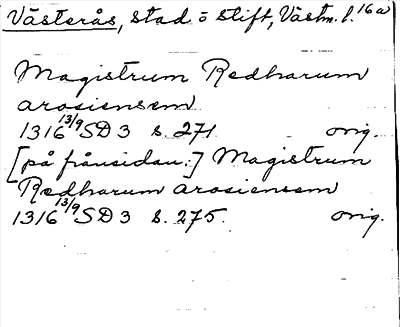 Västerås, stad o stift, Västm. l. 16 a
Magistrum Redharum
arosiensem
1316 13/9 SD 3 s. 271. orig.
[på frånsidan:] Magistrum
Redharum arosiensem
1316 13/9 SD 3 s. 275. orig.